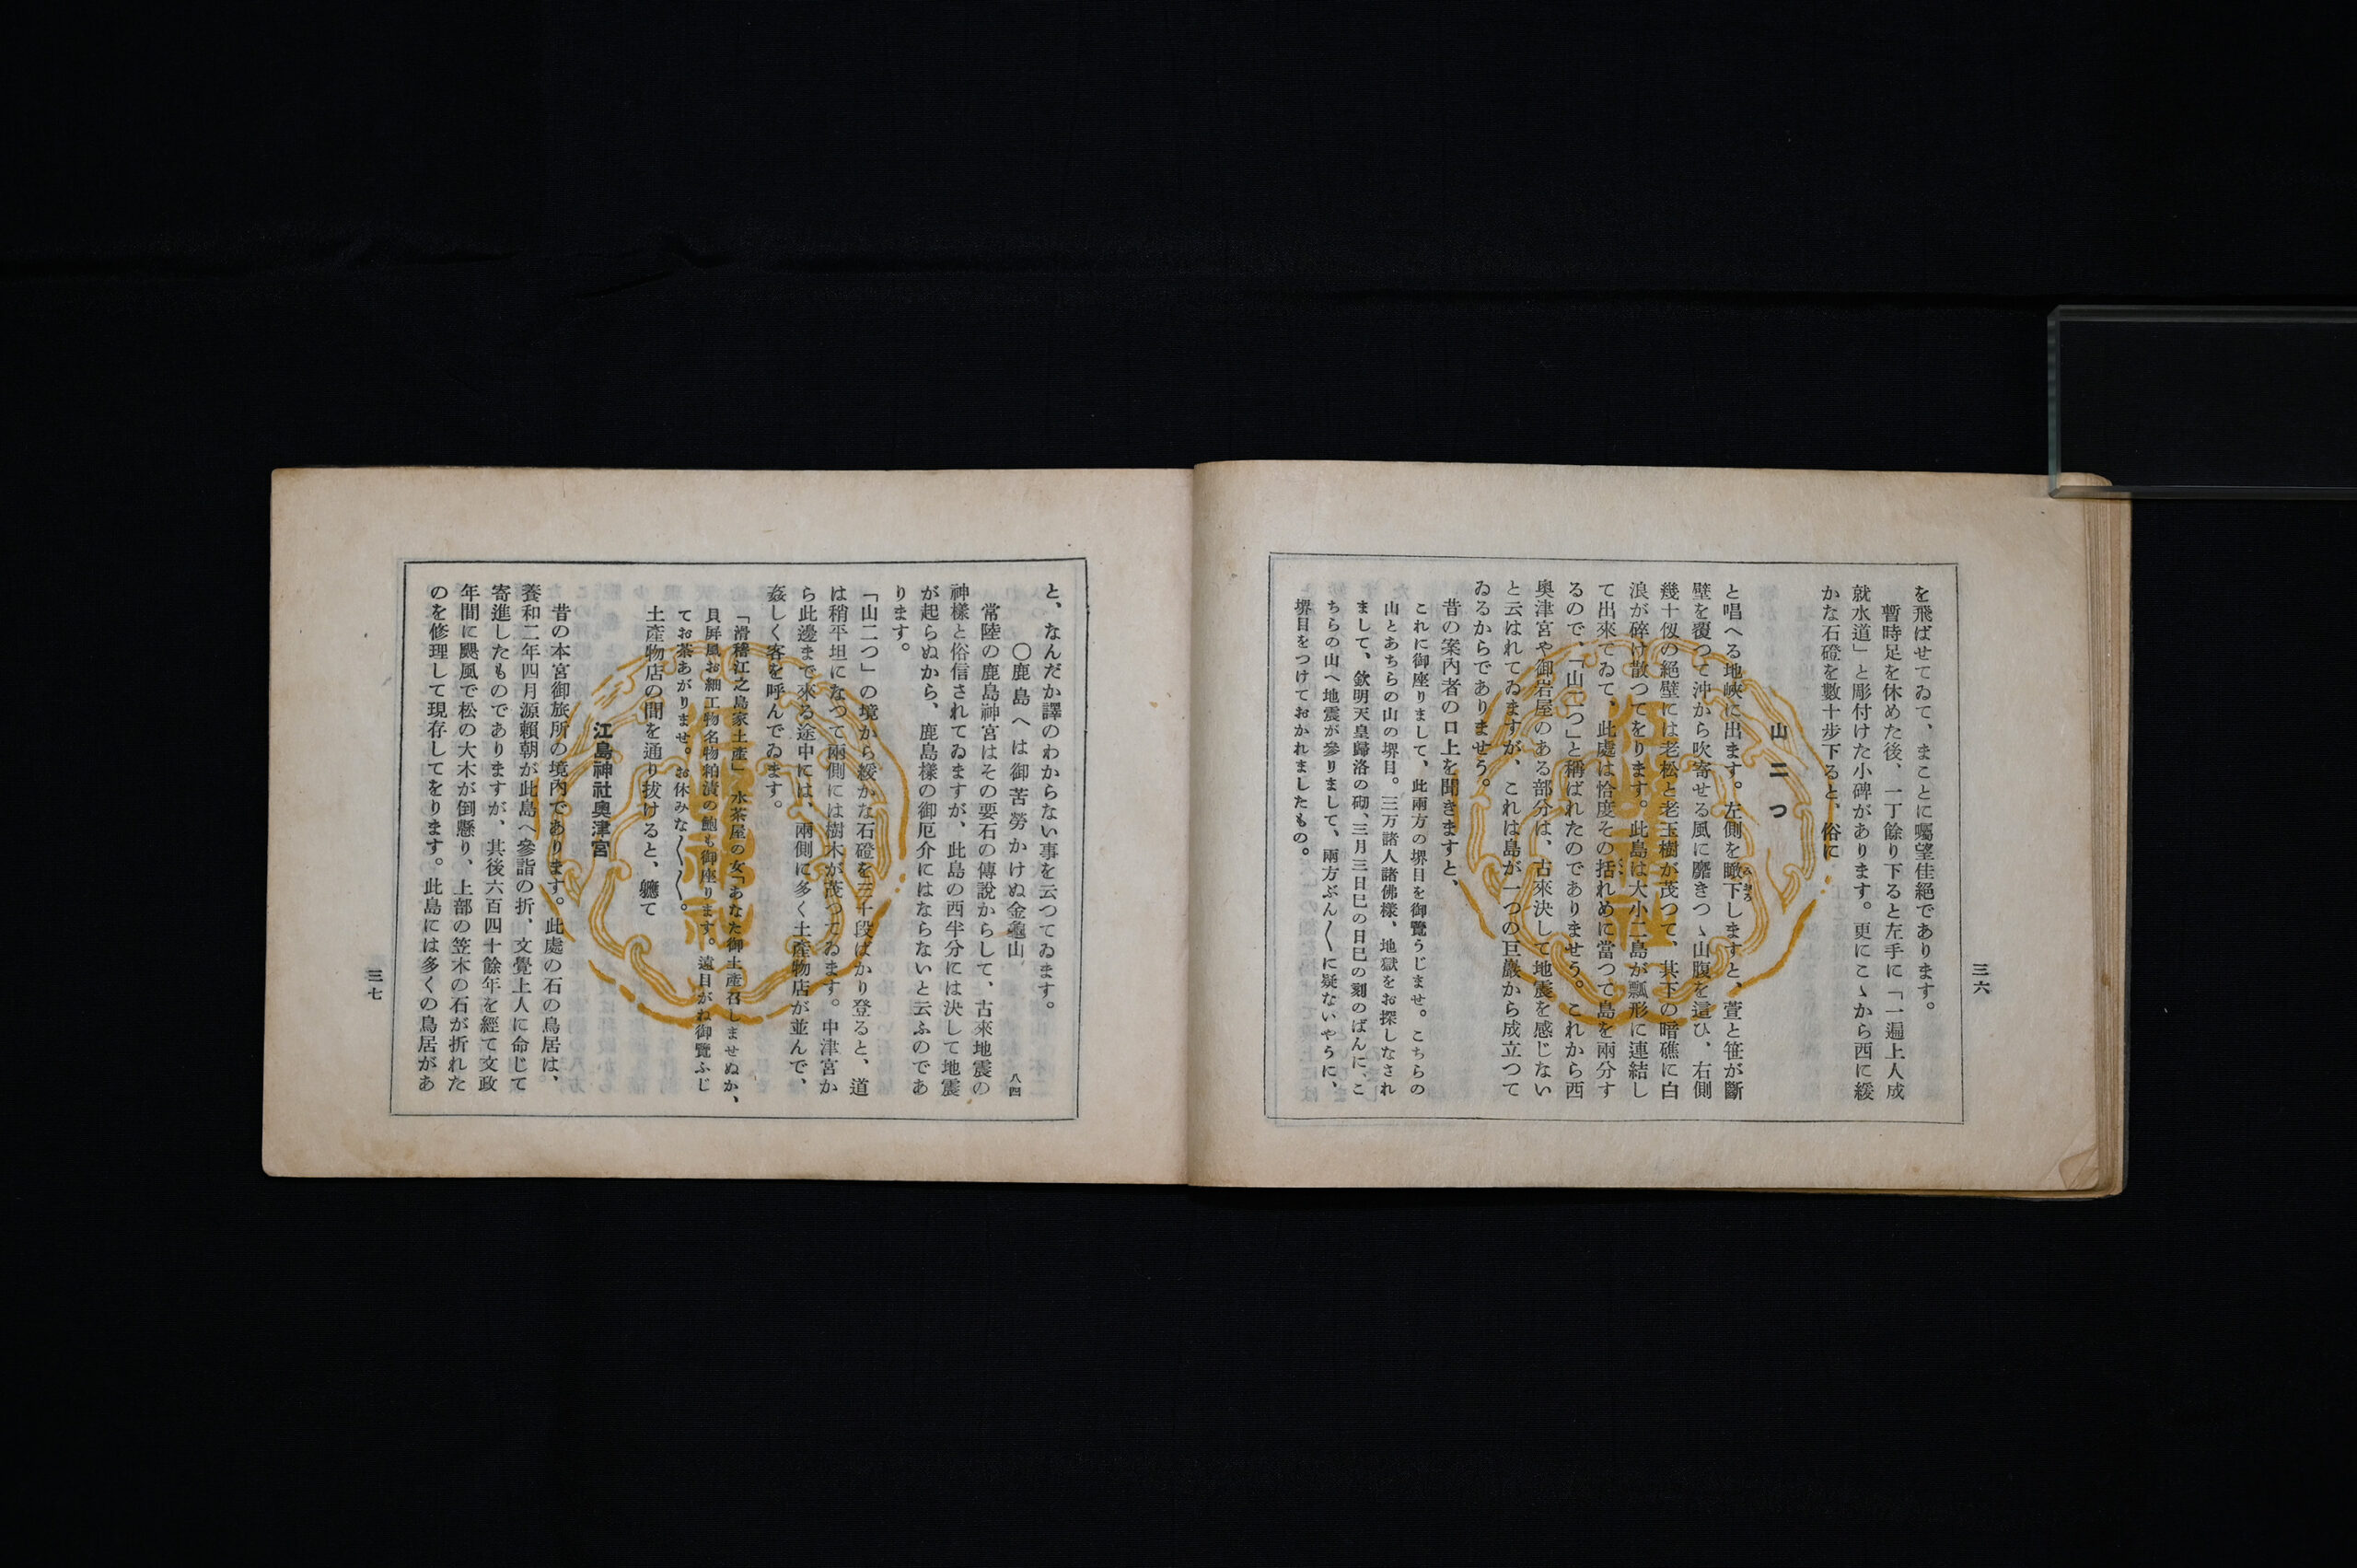 を飛ばせてゐて、まことに囑望佳絕であります。
暫時足を休めた後、一丁餘り下ると左手に「一遍上人成
就水道」と彫付けた小碑があります。更にこゝから西に緩
かな石磴を數十步下ると、俗に
山二つ
と唱へる地峽に出ます。左側を瞰下しますと、萱と笹が斷
壁を覆つて沖から吹寄せる風に靡きつゝ山腹を這ひ、右側
幾十仭の絕壁には老松と老玉樹が茂つて、其下の暗礁に白
浪が碎け散つてをります。此島は大小二島が瓢形に連結し
て出來てゐて、此處は恰度その括れめに當つて島を兩分す
るので、「山二つ」と稱ばれたのでありませう。これから西
奧津宮や御岩屋のある部分は、古來決して地震を感じない
と云はれてゐますが、これは島が一つの巨巖から成立つて
ゐるからでありませう。
昔の案內者の口上を聞きますと、
これに御座りまして、此兩方の堺目を御覽うじませ。こちらの
山とあちらの山の堺目。三万諸人諸佛樣、地獄をお探しなされ
まして、欽明天皇歸洛の砌、三月三日巳の日巳の刻のばんに、こ
ちらの山へ地震が參りまして、兩方ぶん〱に疑ないやうに、
堺目をつけておかれましたもの。
三六
と、なんだか譯のわからない事を云つてゐます。
〇鹿島へは御苦勞かけぬ金龜山 八四
常陸の鹿島神宮はその要石の傳說からして、古來地震の
神樣と俗信されてゐますが、此島の西半分には決して地震
が起らぬから、鹿島樣の御厄介にはならないと云ふのであ
ります。
「山二つ」の境から緩かな石磴を三十段ばかり登ると、道
は稍平坦になつて兩側には樹木が茂つてゐます。中津宮か
ら此邊まで來る途中には、兩側に多く土產物店が並んで、
姦しく客を呼んでゐます。
「滑稽江之島家土產」 水茶屋の女「あなた御土產召しませぬか、
貝屛風お細工物名物粕漬の鮑も御座ります。遠目がね御覽ふじ
てお茶あがりませ。お休みな〱〱。
土產物店の間を通り拔けると、軈て
江島神社奧津宮
昔の本宮御旅所の境內であります。此處の石の鳥居は、
養和二年四月源賴朝が此島へ參詣の折、文覺上人に命じて
寄進したものでありますが、其後六百四十餘年を經て文政
年間に颶風で松の大木が倒懸り、上部の笠木の石が折れた
のを修理して現存してをります。此島には多くの鳥居があ
三七